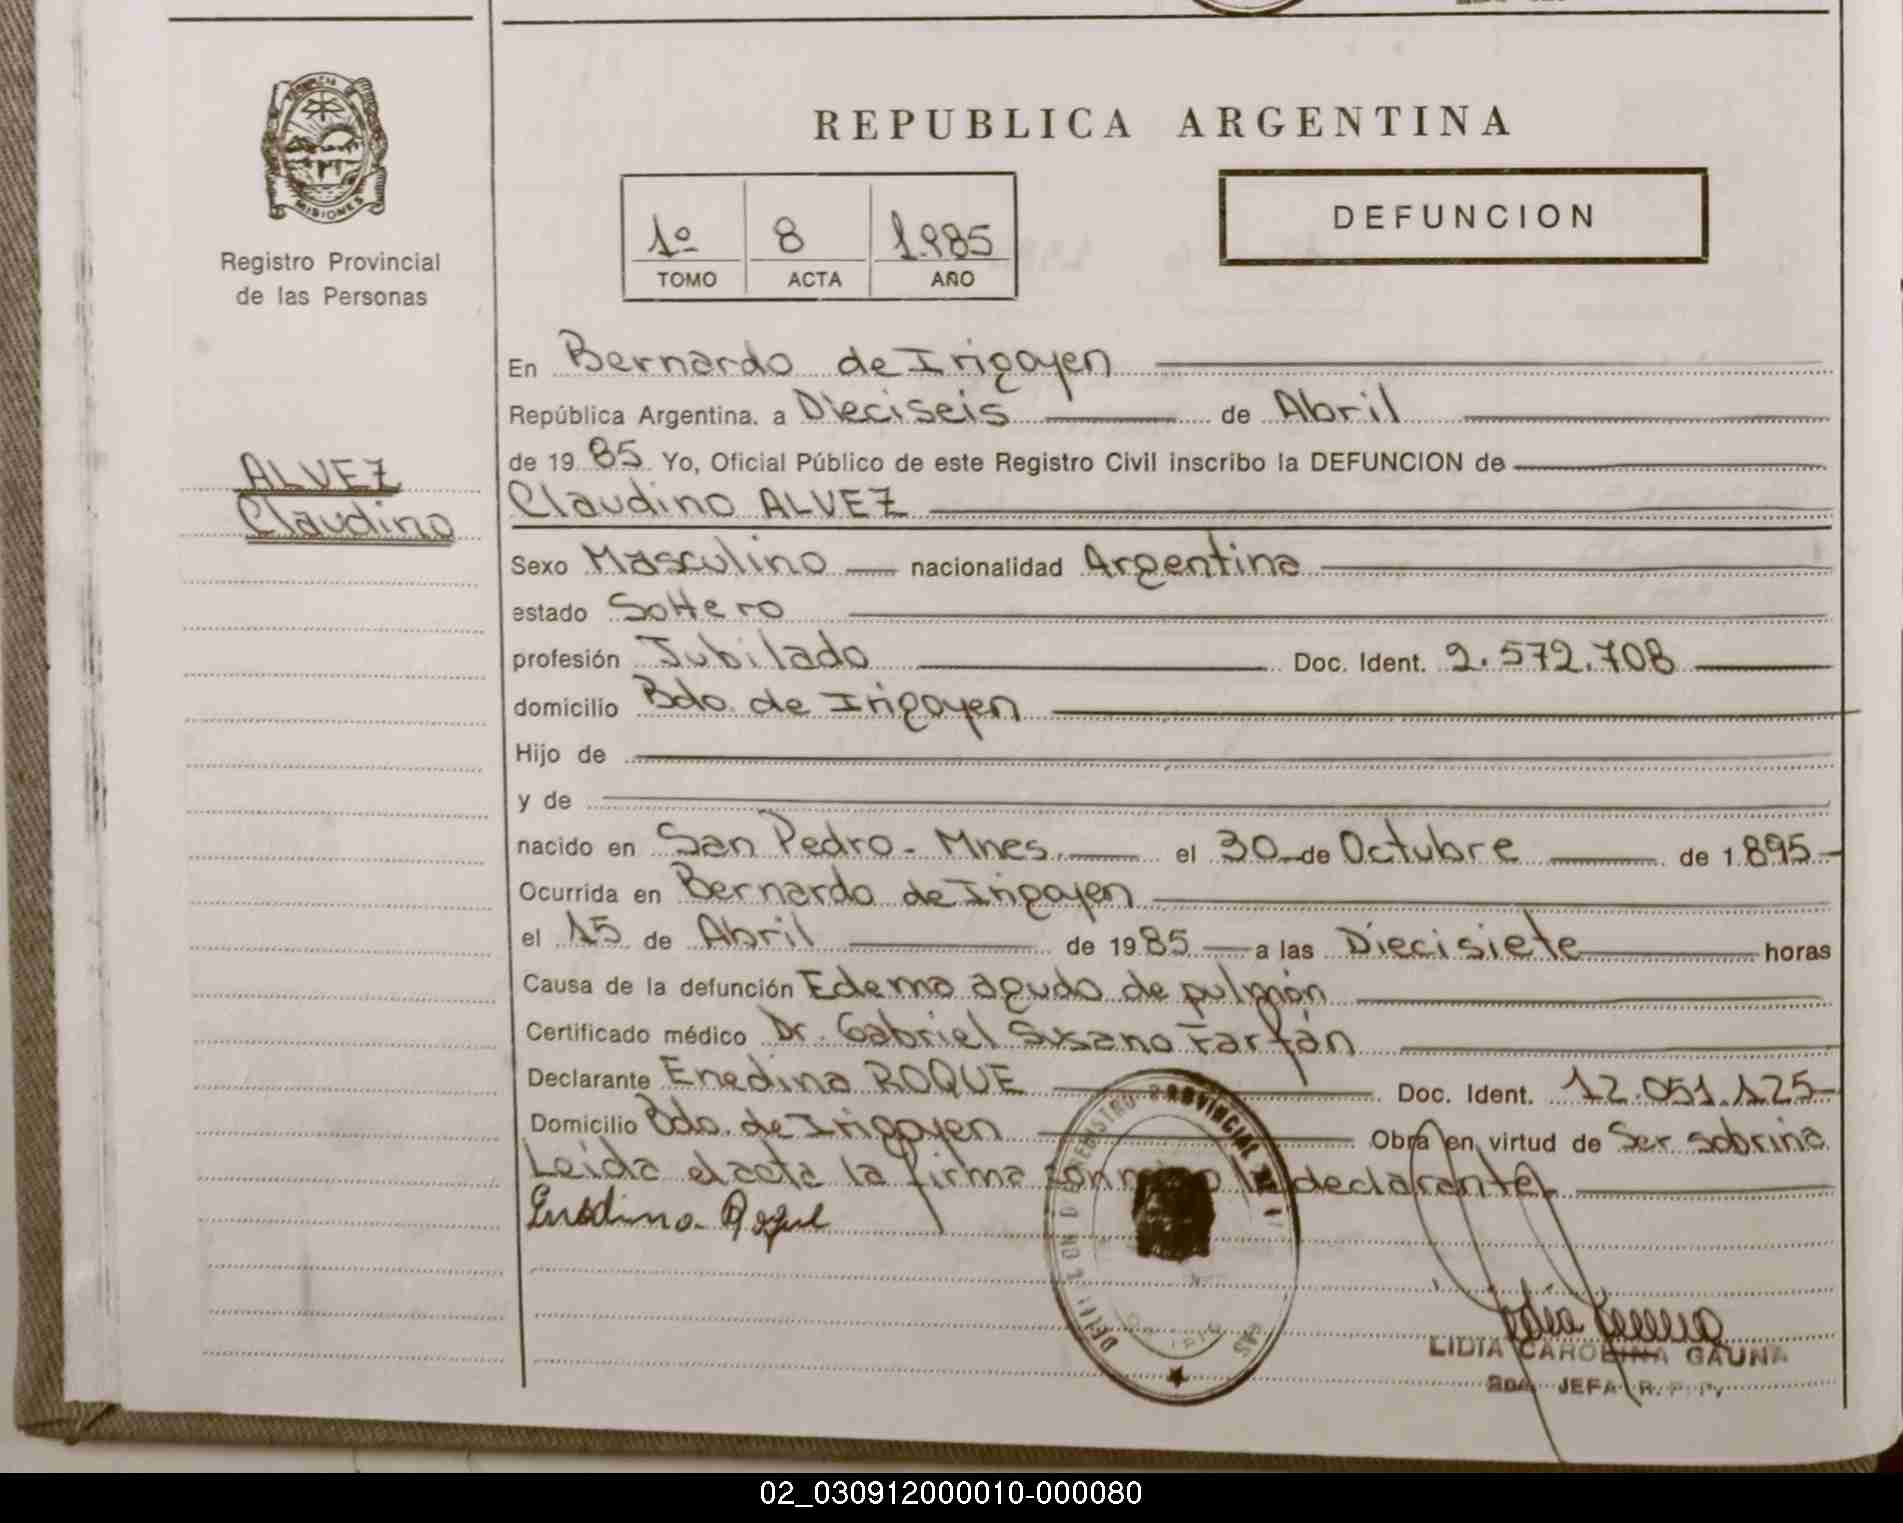 REPUBLICA ARGENTINA
PROVINCIA
MISIONES
Registro Provincial
de las Personas
1º 8 1.985
TOMO ACTA AÑO
DEFUNCION
ALVEZ
Claudino
En Bernardo de Irigoyen
República Argentina. a Dieciseis de Abril
de 19 85 Yo, Oficial Público de este Registro Civil inscribo la DEFUNCION de
Claudino ALVEZ
Sexo Masculino nacionalidad Argentina
estado Soltero
profesión Jubilado Doc. Ident. 2.572.708
domicilio Bdo. de Irigoyen
Hijo de
y de
nacido en San Pedro - Mnes. el 30 de Octubre de 1.895
Ocurrida en Bernardo de Irigoyen
el 15 de Abril de 19 85 a las Diecisiete horas
Causa de la defunción Edema agudo de pulmón
Certificado médico Dr. Gabriel Susano Farfán
Declarante Enedina ROQUE Doc. Ident. 12.051.125
Domicilio Bdo. de Irigoyen Obra en virtud de Ser sobrina
Leída el acta la firma conmigo la declarante
Enedina Roque
REGISTRO PROVINCIAL DE
LIDIA CAROLINA GAUNA
2DA JEFA R. P. P.
02_030912000010-000080